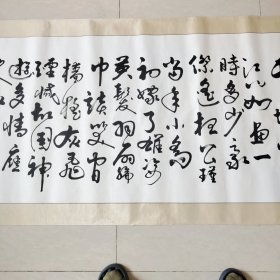 江山如畫一
時多少豪
傑遙想公瑾
當年小喬
初嫁了雄姿
英發羽扇綸
巾談笑間
檣櫓灰飛
煙滅故國神
遊多情應